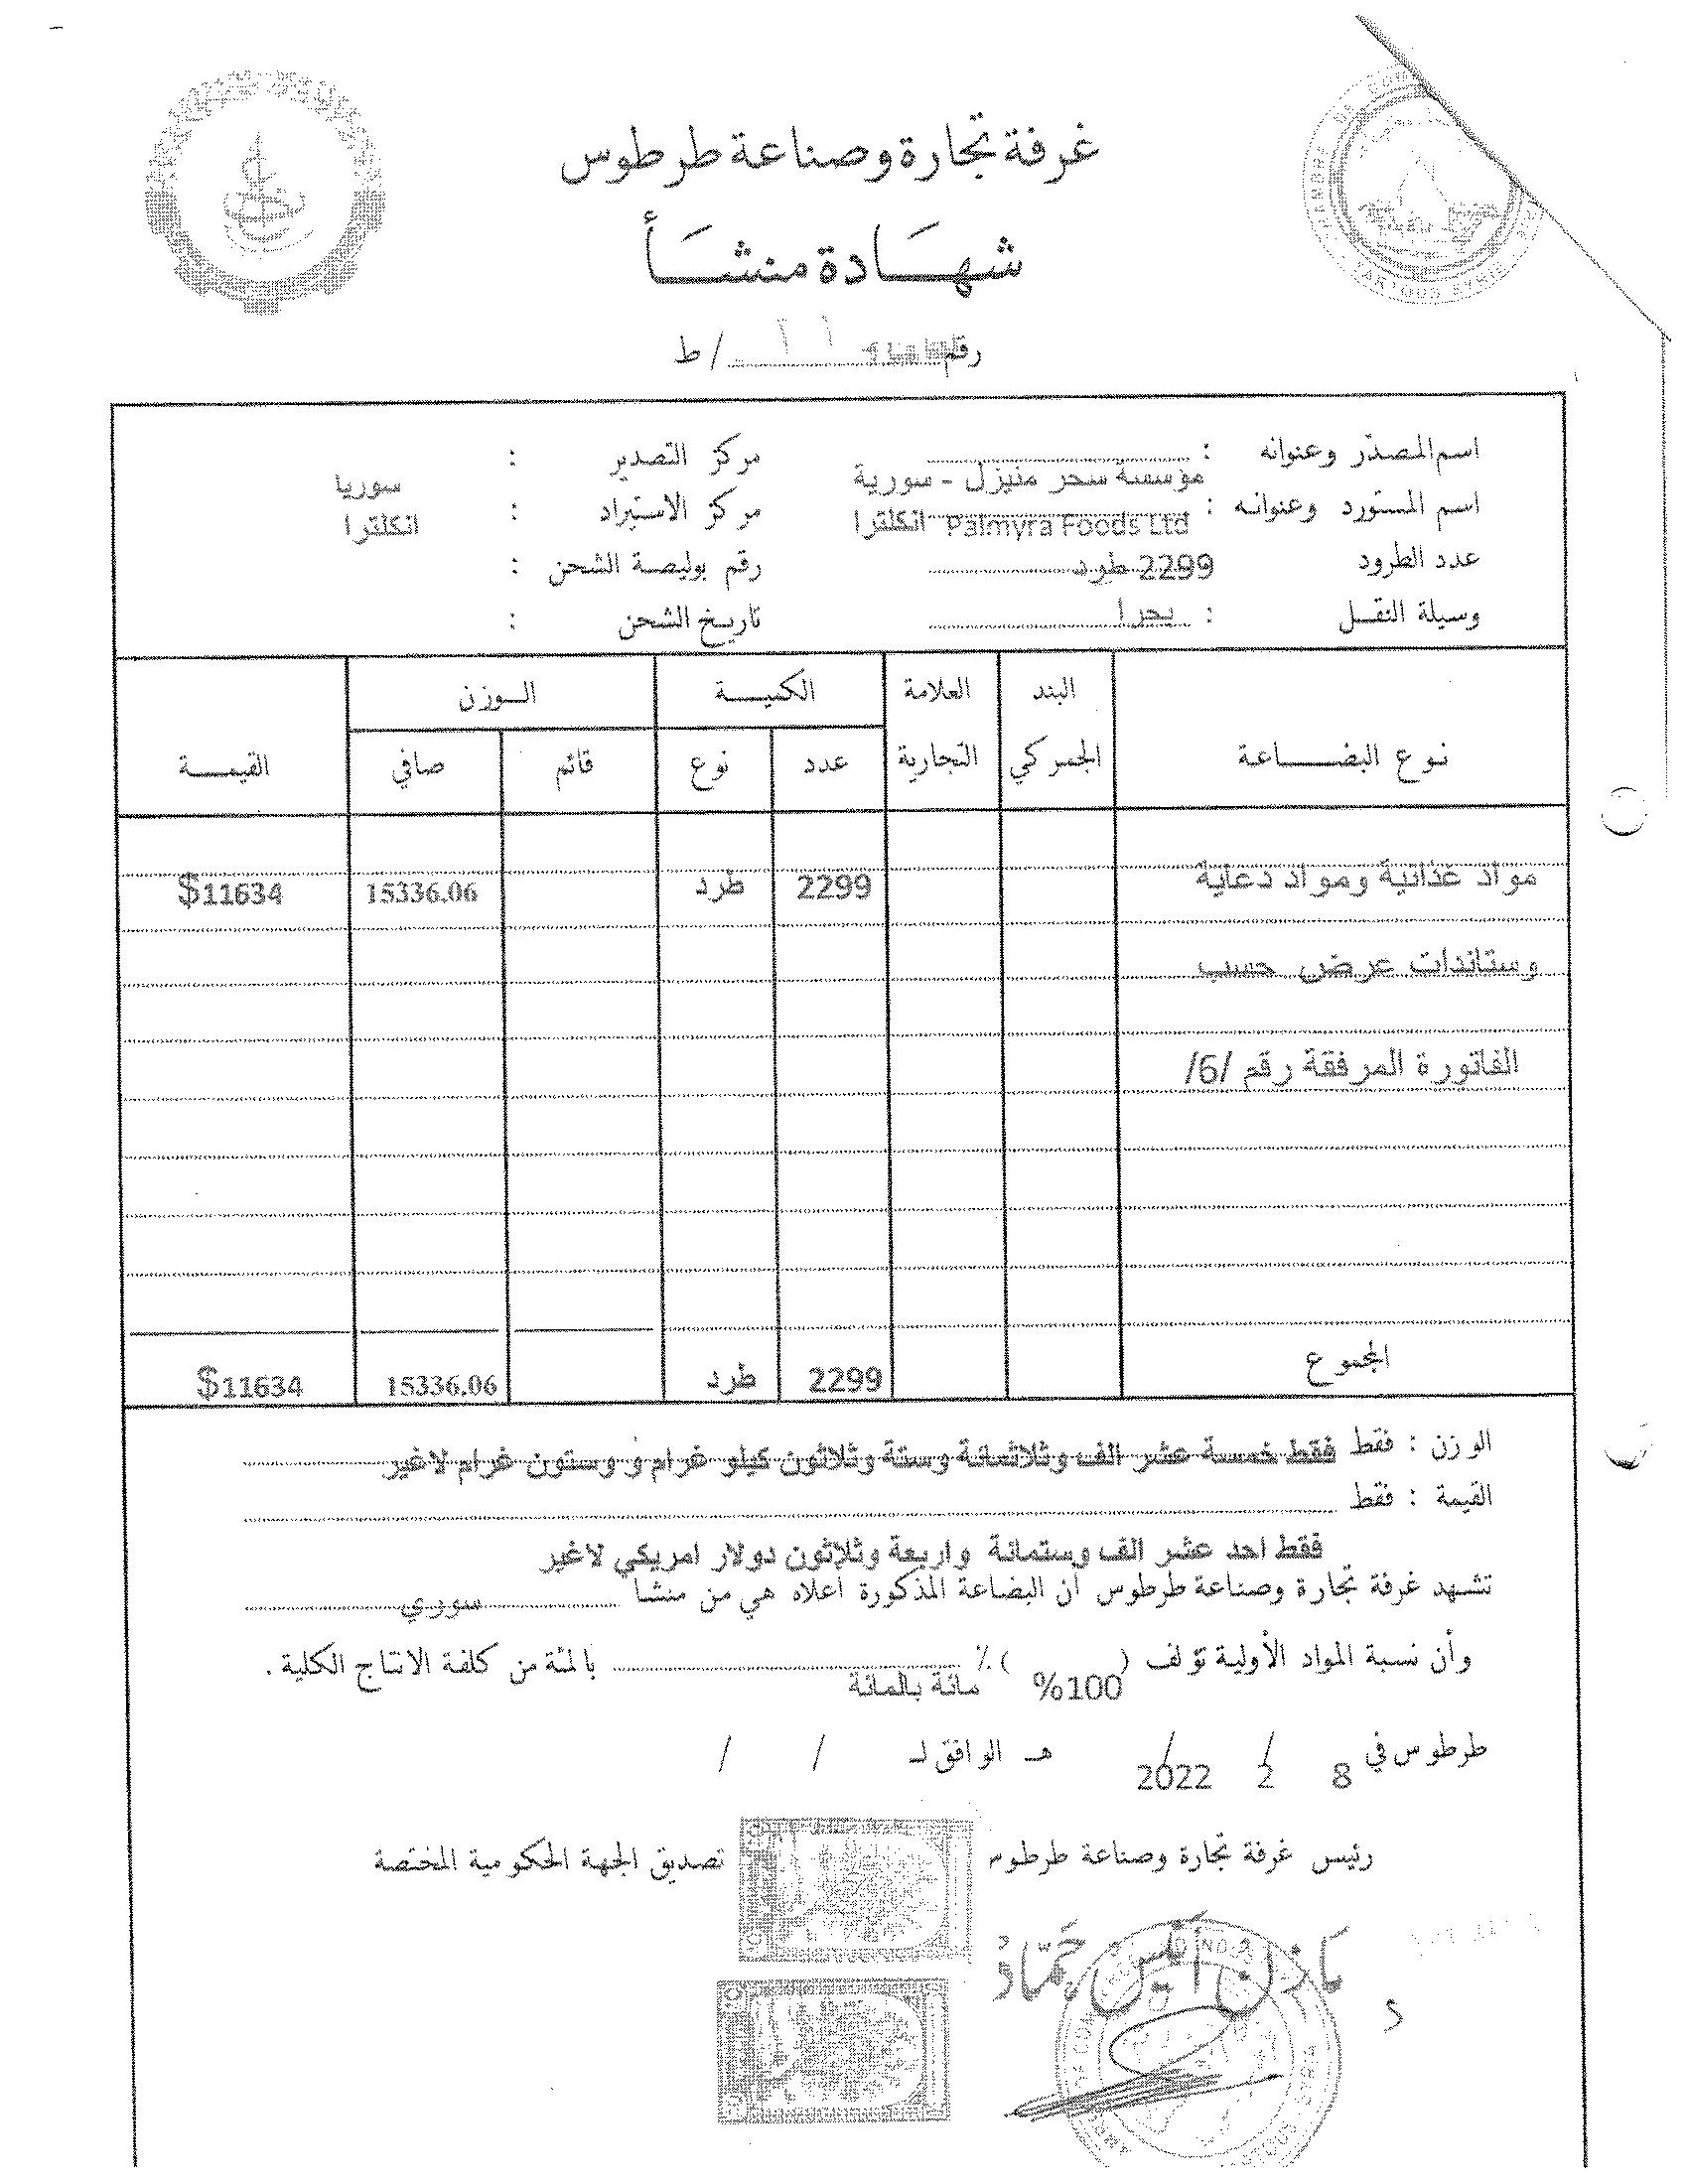 غرفة تجارة وصناعة طرطوس
شهادة منشأ
رقم / ط
اسم المصدّر وعنوانه : مؤسسة سحر منيزل - سورية
مركز التصدير : سوريا
اسم المستورد وعنوانه : Palmyra Foods Ltd انكلترا
مركز الاستيراد : انكلترا
عدد الطرود 2299 طرد
رقم بوليصة الشحن :
وسيلة النقل : بحرا
تاريخ الشحن :
نوع البضاعة البند الجمركي العلامة التجارية الكمية الوزن القيمة
عدد نوع قائم صافي
مواد غذائية ومواد دعاية 2299 طرد 15336.06 $11634
وستاندات عرض حسب
الفاتورة المرفقة رقم /6/
المجموع 2299 طرد 15336.06 $11634
الوزن : فقط فقط خمسة عشر الف وثلاثمائة وستة وثلاثون كيلو غرام و وستون غرام لاغير
القيمة : فقط
فقط احد عشر الف وستمائة واربعة وثلاثون دولار امريكي لاغير
تشهد غرفة تجارة وصناعة طرطوس أن البضاعة المذكورة أعلاه هي من منشا سوري
وأن نسبة المواد الأولية تؤلف ( %100 ) ٪ مائة بالمائة بالمئة من كلفة الانتاج الكلية .
طرطوس في 8 / 2 / 2022 هـ الوافق لـ / /
رئيس غرفة تجارة وصناعة طرطوس
تصديق الجهة الحكومية المختصة
مازن أنيس حمّاد